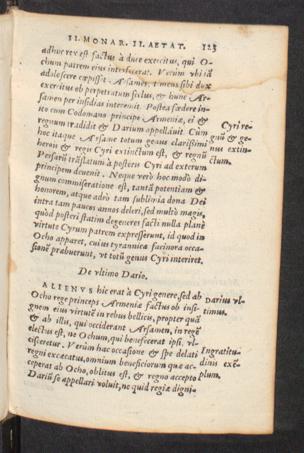 II. MONAR. II. AETAT. 123
adhuc rex est factus à duce exercitus, qui O-
chum patrem eius interfecerat. Verùm ubi iã
adolescere cœpisset Arsames, timens sibi dux
exercitus ob perpetratum scelus, & hunc Ar-
samen per insidias interemit. Postea fœdere in-
ito cum Codomano principe Armeniæ, ei &
regnum tradidit & Darium appellauit. Cùm
hoc itaque Arsame totum genus clarissimi
herois & regis Cyri extinctum est, & regnũ
Persarũ trãslatum à posteris Cyri ad exterum
principem deuenit. Neque verò hoc modò di-
gnum commiseratione est, tantã potentiam &
honorem, atque adeò tam sublimia dona Dei
intra tam paucos annos deleri, sed multò magis,
quòd posteri statim degeneres facti nulla planè
virtute Cyrum patrem expresserunt, id quod in
Ocho apparet, cuius tyrannica facinora occa-
sionẽ prabuerunt, vt totũ genus Cyri interiret.
Cyri re-
gnũ & ge-
nus extin-
ctum.
De vltimo Dario.
ALIENVS hic erat à Cyri genere, sed ab
Ocho rege princeps Armeniæ factus ob insi-
gnem eius virtutẽ in rebus bellicis, propter quã
& ab illis, qui occiderant Arsamen, in regẽ
electus est, ne Ochum, qui benefecerat ipsi, vl-
cisceretur. Verùm hac occasione & spe delati
regni excæcatus, omnium beneficiorum quæ ac-
ceperat ab Ocho, oblitus est, & regno accepto
Dariũ se appellari voluit, ne quid regiæ digni-
Darius vl-
timus.
Ingratitu-
dinis exẽ-
plum.